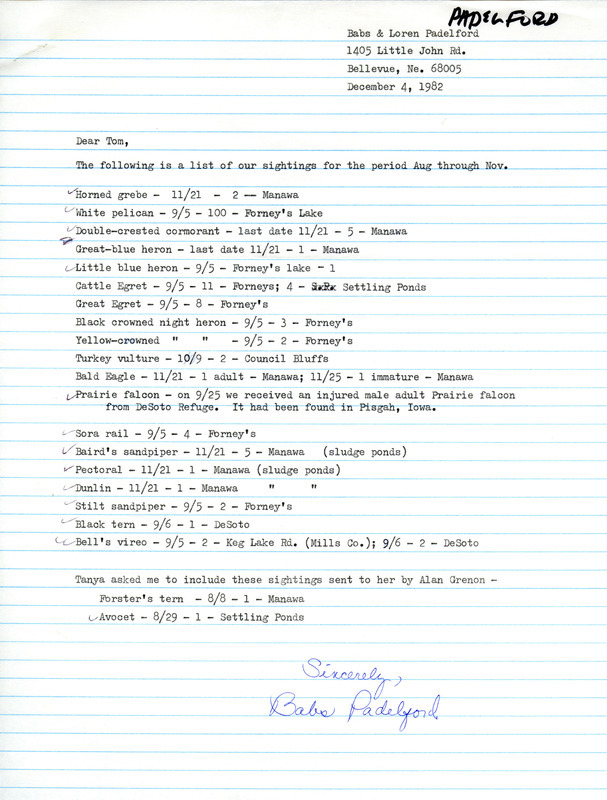 PADELFORD
Babs & Loren Padelford
1405 Little John Rd.
Bellevue, Ne. 68005
December 4, 1982
Dear Tom,
The following is a list of our sightings for the period Aug through Nov.
Horned grebe - 11/21 - 2 -- Manawa
White pelican - 9/5 - 100 - Forney's Lake
Double-crested cormorant - last date 11/21 - 5 - Manawa
Great-blue heron - last date 11/21 - 1 - Manawa
Little blue heron - 9/5 - Forney's lake - 1
Cattle Egret - 9/5 - 11 - Forneys; 4 - Settling Ponds
Great Egret - 9/5 - 8 - Forney's
Black crowned night heron - 9/5 - 3 - Forney's
Yellow-crowned " " - 9/5 - 2 - Forney's
Turkey vulture - 10/9 - 2 - Council Bluffs
Bald Eagle - 11/21 - 1 adult - Manawa; 11/25 - 1 immature - Manawa
Prairie falcon - on 9/25 we received an injured male adult Prairie falcon
from DeSoto Refuge. It had been found in Pisgah, Iowa.
Sora rail - 9/5 - 4 - Forney's
Baird's sandpiper - 11/21 - 5 - Manawa (sludge ponds)
Pectoral - 11/21 - 1 - Manawa (sludge ponds)
Dunlin - 11/21 - 1 - Manawa " "
Stilt sandpiper - 9/5 - 2 - Forney's
Black tern - 9/6 - 1 - DeSoto
Bell's vireo - 9/5 - 2 - Keg Lake Rd. (Mills Co.); 9/6 - 2 - DeSoto
Tanya asked me to include these sightings sent to her by Alan Grenon -
Forster's tern - 8/8 - 1 - Manawa
Avocet - 8/29 - 1 - Settling Ponds
Sincerely,
Babs Padelford